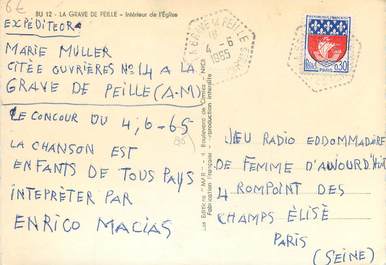 6€
BU 12 - LA GRAVE DE PEILLE - Intérieur de l'Église
EXPÉDITEOR
MARIE MULLER
CITÉE OUVRIÈRES No 14 A LA
GRAVE DE PEILLE (A-M)
LE CONCOUR DU 4,6-65
LA CHANSON EST
ENFANTS DE TOUS PAYS
INTEPRÈTER PAR
ENRICO MACIAS
Les Editions "MAR" - Boulevard de Cimiez - NICE
Fabrication Française - Reproduction interdite
PEILLE
18
4 - 6
1965
RÉPUBLIQUE FRANÇAISE
POSTES 0,30
PARIS
JEU RADIO EDDOMMADAIRE
DE FEMME D'AUJOURD'HUIT
4 ROMPOINT DES
CHAMPS ÉLISÉ
PARIS
(SEINE)